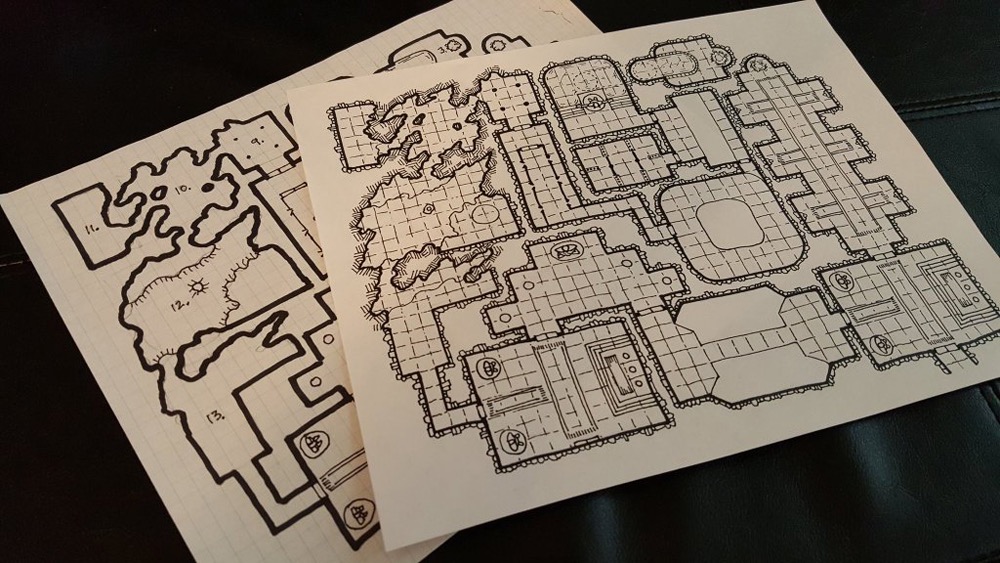 3.
9.
10.
11.
12.
13.